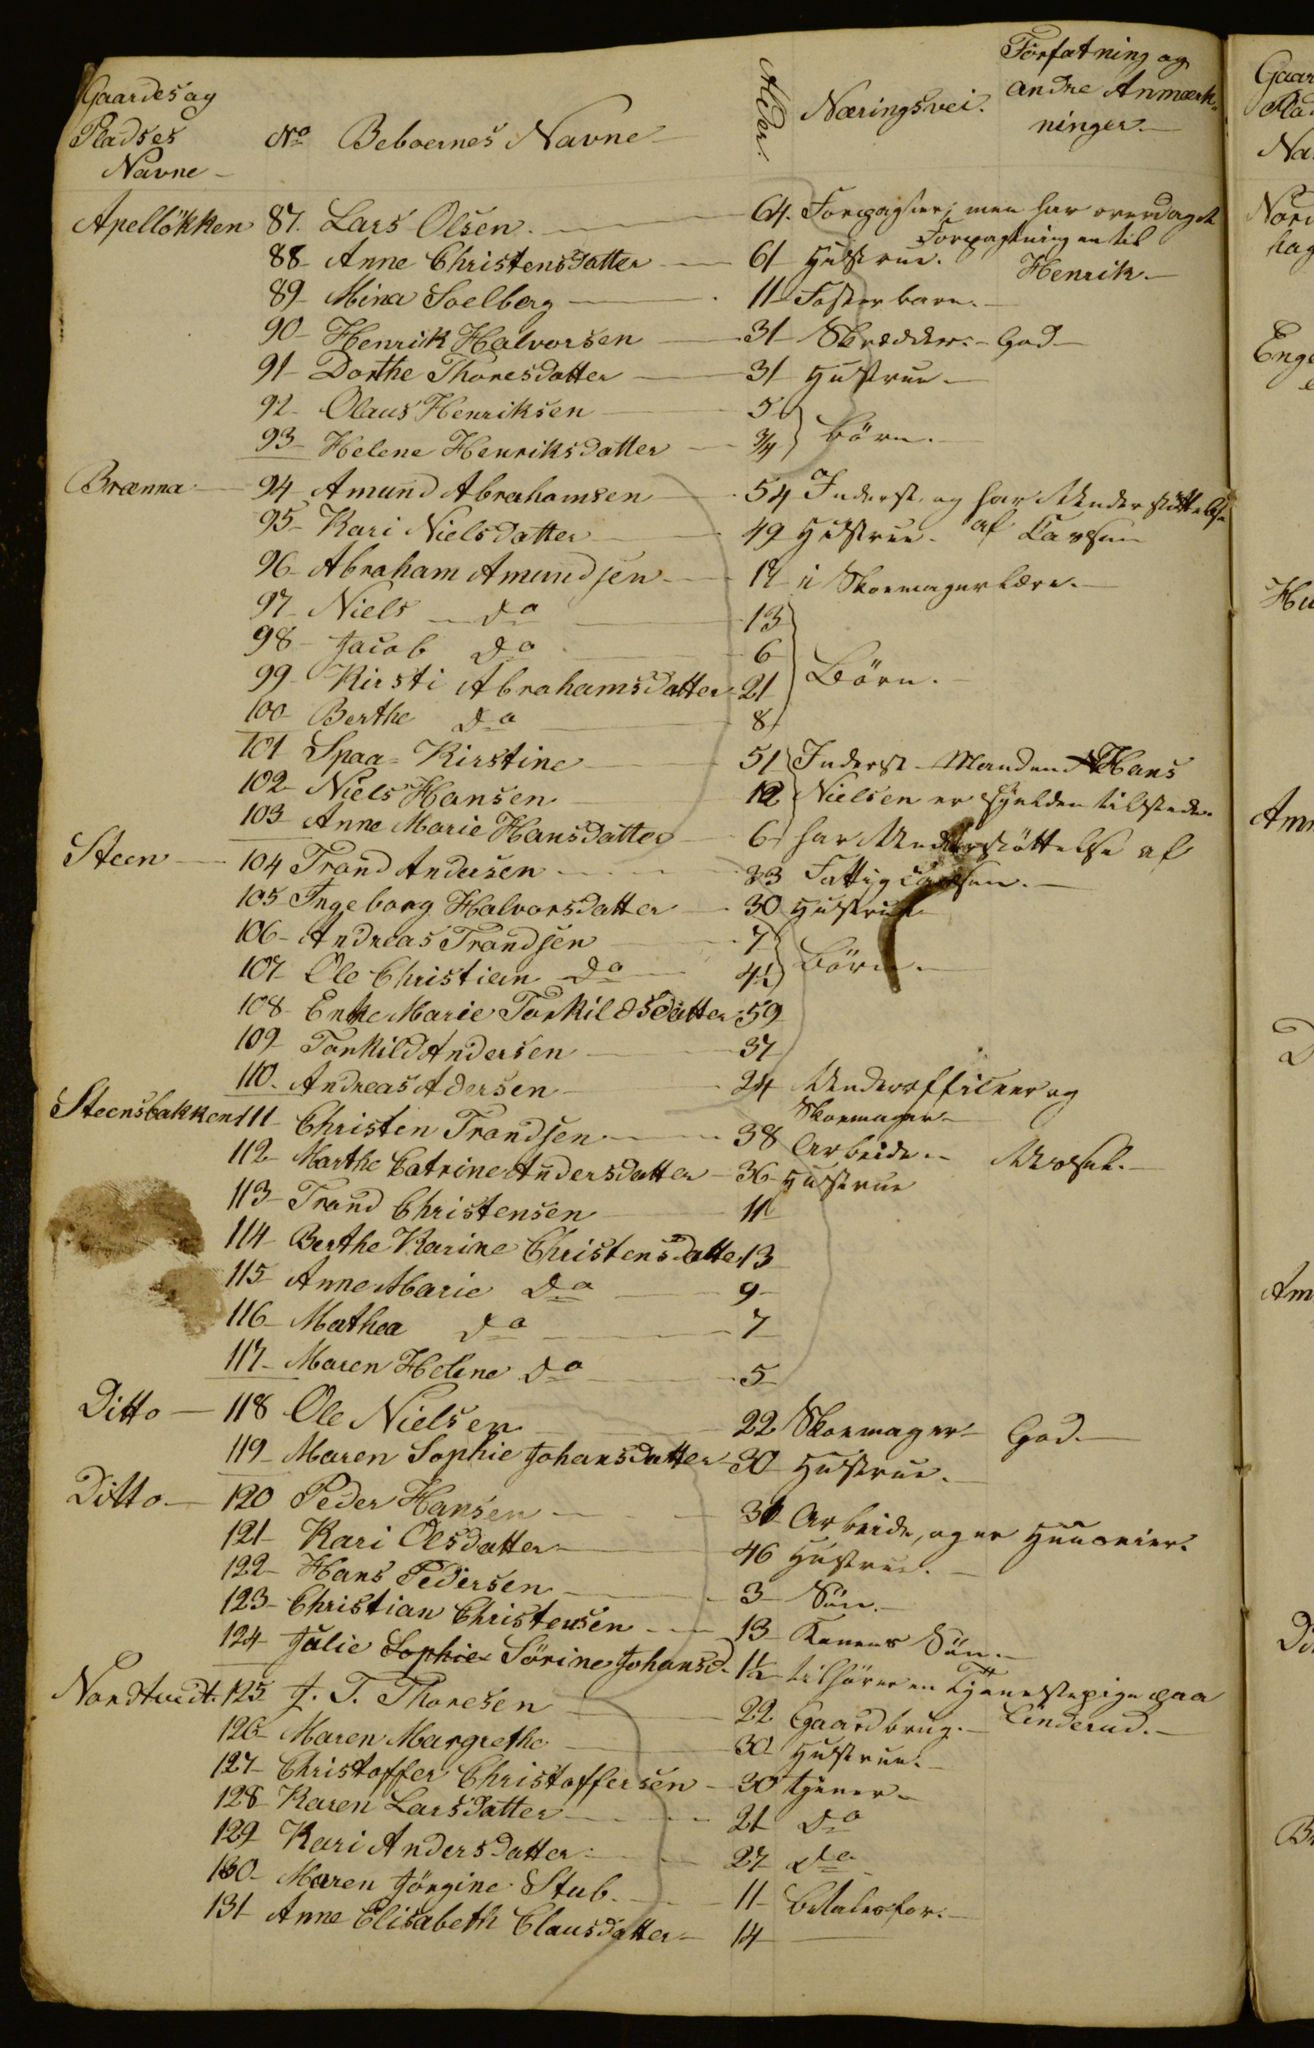 Gaardes og Pladses Navne - No Beboernes Navne - Alder. Næringsvei. Forfatning og andre Anmærkninger. -
Apellökken 87. Lars Olsen. 64. Forpagter, men har overdraget Forpagtningen til Henrik. -
88 - Anne Christensdatter 61 Hustrue.
89 - Mina Soelberg 11 Fosterbarn. -
90 - Henrik Halvorsen 31 Skrædder. - God -
91 - Dorthe Thoresdatter 31 Hustrue -
92 - Olaus Henriksen 5 } Börn. -
93 - Helene Henriksdatter 3/4
Brænna - 94 Amund Abrahamsen 54 Inderst og har Understöttelse af Kassen
95 - Kari Nielsdatter 49 Hustrue.
96 - Abraham Amundsen 17 i Skoemagerlære. -
97 - Niels do 13
98 - Jacob do 6
99 - Kirsti Abrahamsdatter 21 } Börn. -
100 - Berthe do 8
101 Spaa-Kirstine 51 Inderst - Manden Hans
102 - Niels Hansen 12 Nielsen er sjelden tilstede.
103 Anne Marie Hansdatter 6 har Understöttelse af
Steen - 104 Trond Andersen 33 Fattigcassen. -
105 Ingeborg Halvorsdatter 30 Hustrue
106 - Andreas Trondsen 7 } Börn. -
107 Ole Christian do 4 1/2
108 - Enke Marie Torkildsdatter 59
109 - Torkild Andersen 37
110. Andreas Adersen 24 Underofficeer og Skoemager -
Steensbakken 111 Christen Trondsen 38 Arbeide. - Uvæsel. -
112 - Marthe Catrine Andersdatter 36 Hustrue
113 - Trond Christensen 11
114 Berthe Karine Christensdatter 13
115 - Anne Marie do 9 -
116 - Mathea do 7
117 - Maren Helene do 5
Ditto - 118 Ole Nielsen 22 Skoemager - God. -
119 - Maren Sophie Johansdatter 30 Hustrue. -
Ditto - 120 Peder Hansen 31 Arbeide, og er
121 - Kari Olsdatter 46 Hustrue. -
122 - Hans Pedersen 3 Sön. -
123 - Christian Christensen 13 Konens Sön. -
124 - Julie Sophie Sörine Johansd. 1 1/2 tilhörer en Tjenestepige paa Linderud. -
Nordtvedt. 125. J. T. Thoresen 22 Gaardbrug. -
126 - Maren Margrethe 30 Hustrue. -
127 - Christoffer Christoffersen 30 tjener -
128 - Karen Larsdatter 21 do
129 Kari Andersdatter 27 do
130 - Maren Jörgine Stub. 11 betales for. -
131 - Anne Elisabeth Clausdatter 14